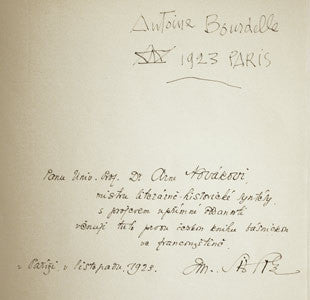 Antoine Bourdelle
1923 PARIS
Panu Univ. Prof. Dr Arne Novákovi,
mistru literárně-historické syntézy,
s projevem upřímné
věnuji tuto prvou českou knihu básnickou
ve francouzštině
v Paříži, v listopadu 1923.